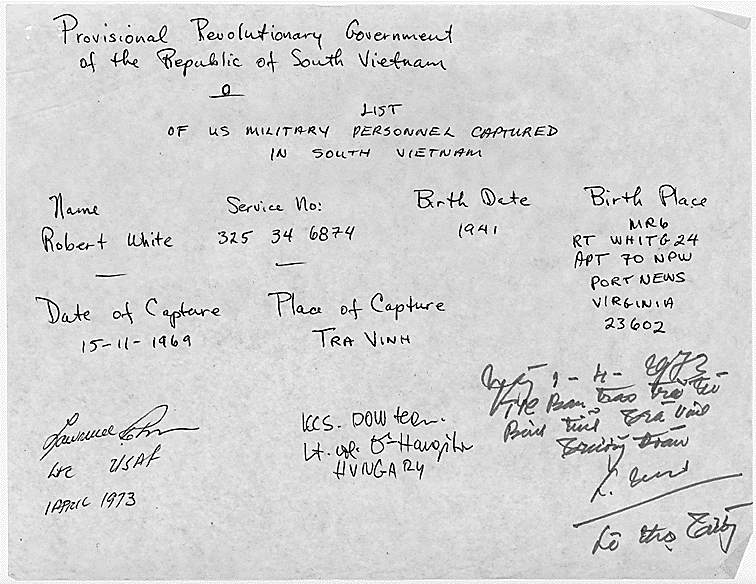 Provisional Revolutionary Government
of the Republic of South Vietnam
LIST
OF US MILITARY PERSONNEL CAPTURED
IN SOUTH VIETNAM
Name Service No: Birth Date Birth Place
Robert White 325 34 6874 1941 MR6
RT WHITG 24
APT 70 NPW
PORT NEWS
VIRGINIA
23602
Date of Capture Place of Capture
15-11-1969 TRA VINH
Lawrence
Ltc USAF
1 APRIL 1973
ICCS. DOW team.
Lt. col.
HUNGARY
Ngày 1-4-1973
Ban trao trả tù
Binh tỉnh Trà Vinh
Trưởng đoàn
Lê thọ